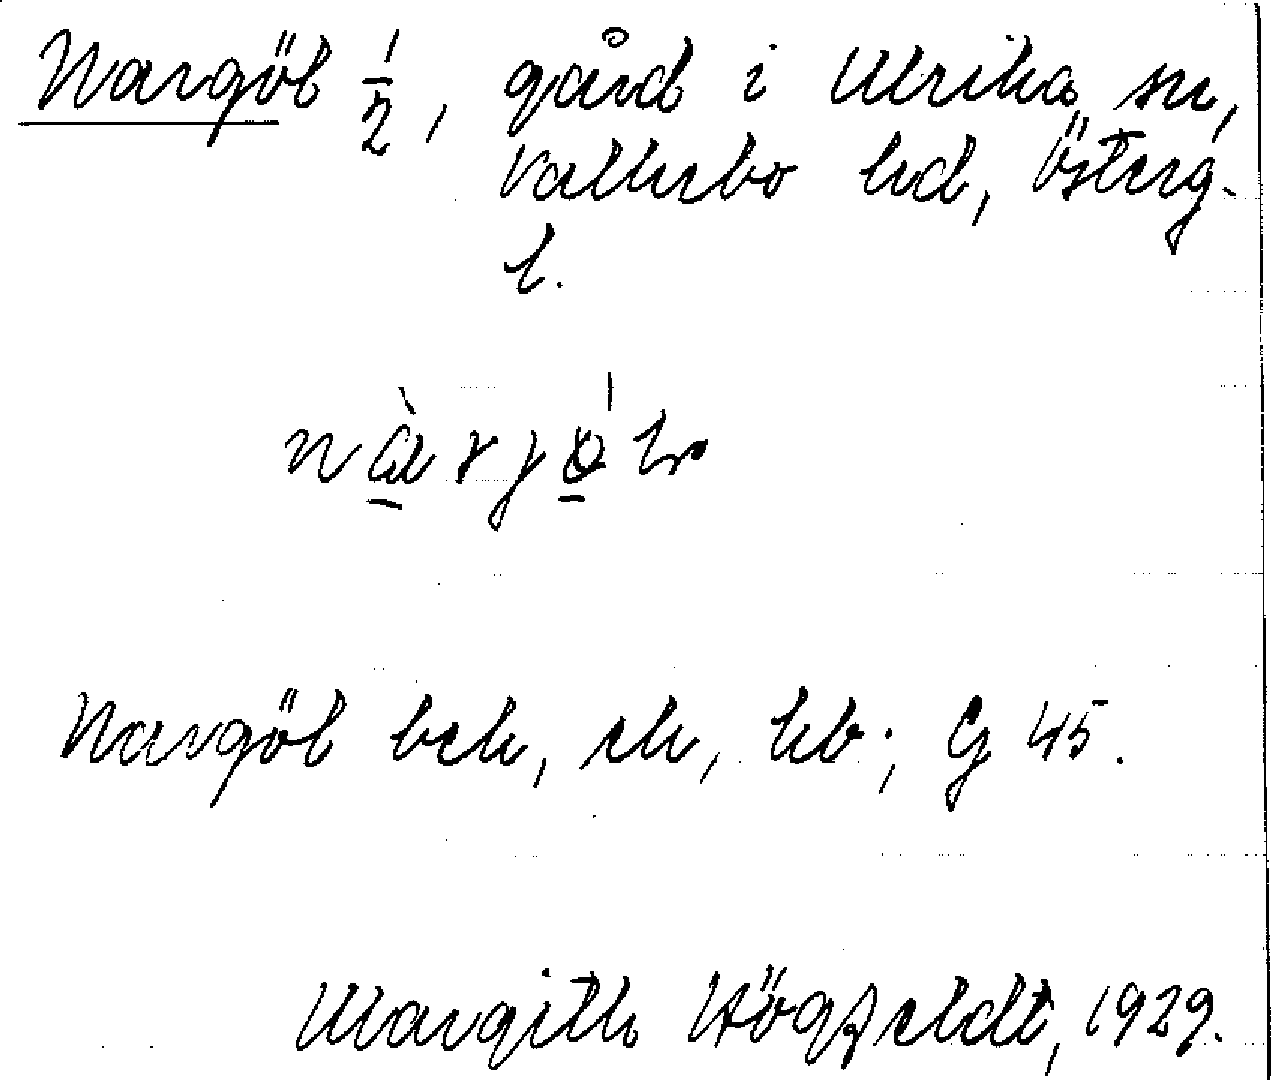 Nargöl 1/2, gård i Ulrika sn,
Valkebo hd, Österg.
l.
Nargöl bek, ek, hb; G 45.
Margith Högfeldt, 1929.